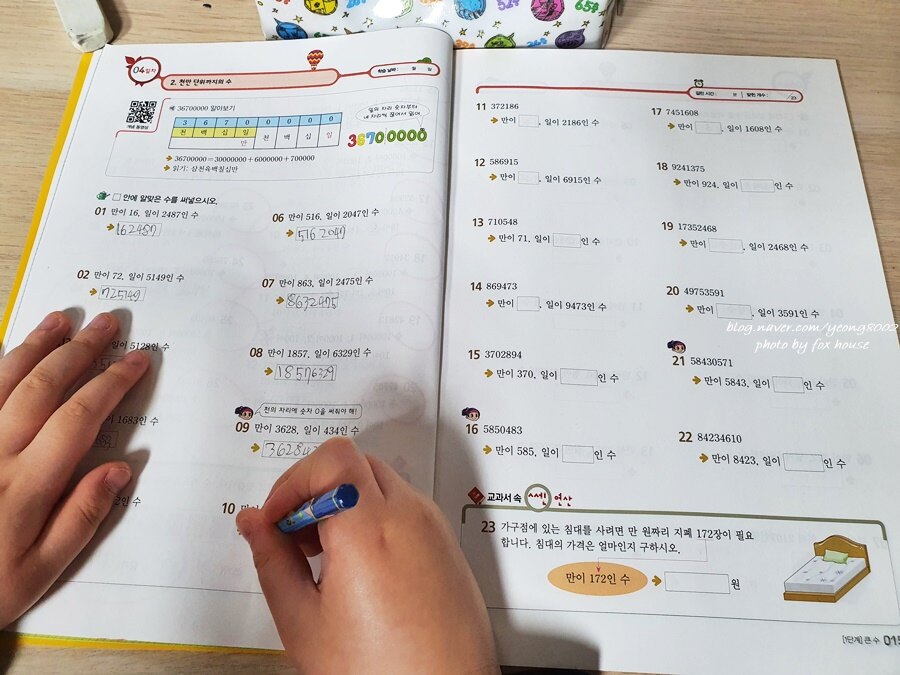 04일차
2. 천만 단위까지의 수
학습 날짜 : 월 일
개념 동영상
36700000 알아보기
일의 자리 숫자부터
네 자리씩 끊어서 읽어.
3 6 7 0 0 0 0 0
천 백 십 일 천 백 십 일
만
36700000
36700000=30000000+6000000+700000
읽기: 삼천육백칠십만
□ 안에 알맞은 수를 써넣으시오.
01 만이 16, 일이 2487인 수
162487
02 만이 72, 일이 5149인 수
725149
일이 5128인 수
1683인 수
2인 수
06 만이 516, 일이 2047인 수
5162047
07 만이 863, 일이 2475인 수
8632475
08 만이 1857, 일이 6329인 수
18576329
천의 자리에 숫자 0을 써줘야 해!
09 만이 3628, 일이 434인 수
10
걸린 시간 : 분
맞힌 개수 : /23
11 372186
만이 , 일이 2186인 수
12 586915
만이 , 일이 6915인 수
13 710548
만이 71, 일이 인 수
14 869473
만이 , 일이 9473인 수
15 3702894
만이 370, 일이 인 수
16 5850483
만이 585, 일이 인 수
17 7451608
만이 , 일이 1608인 수
18 9241375
만이 924, 일이 인 수
19 17352468
만이 , 일이 2468인 수
20 49753591
만이 , 일이 3591인 수
21 58430571
만이 5843, 일이 인 수
22 84234610
만이 8423, 일이 인 수
교과서 속 쎈 연산
23 가구점에 있는 침대를 사려면 만 원짜리 지폐 172장이 필요
합니다. 침대의 가격은 얼마인지 구하시오.
만이 172인 수 원
[1단계] 큰 수 015
blog.naver.com/yeong8002
photo by fox house